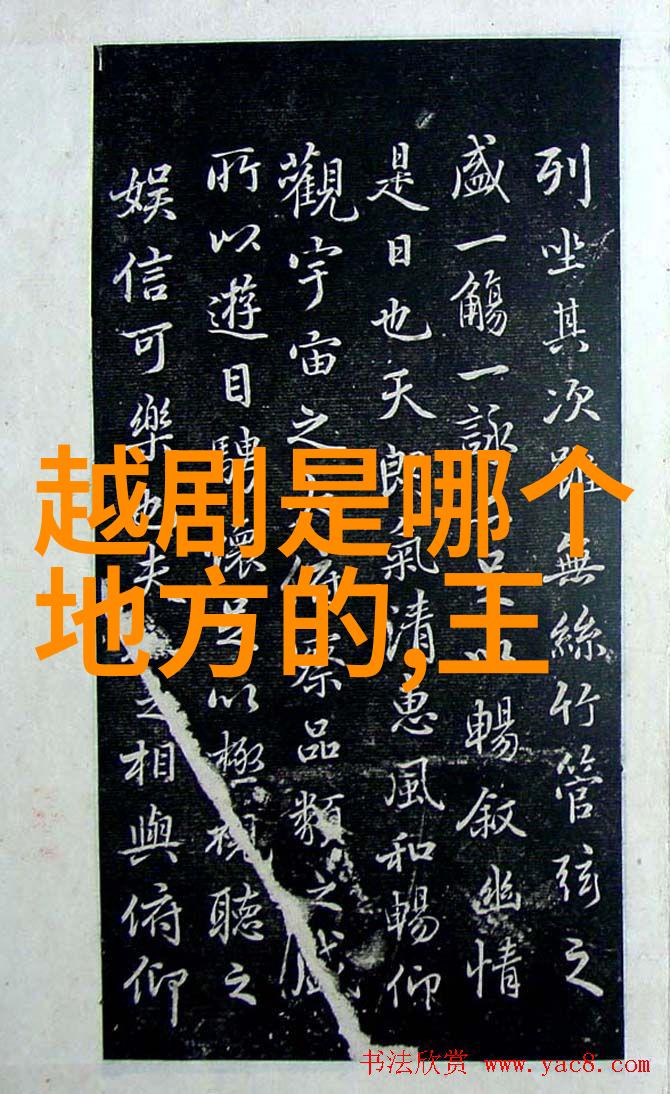 列坐其次雖無絲竹管弦之
盛一觴一詠亦足以暢敘幽情
是日也天朗氣清惠風和暢仰
觀宇宙之大俯察品類之盛
所以遊目騁懷足以極視聽之
娛信可樂也夫之相與俯仰
越剧是哪个
地方的,王
书法欣赏 www.yac8.com